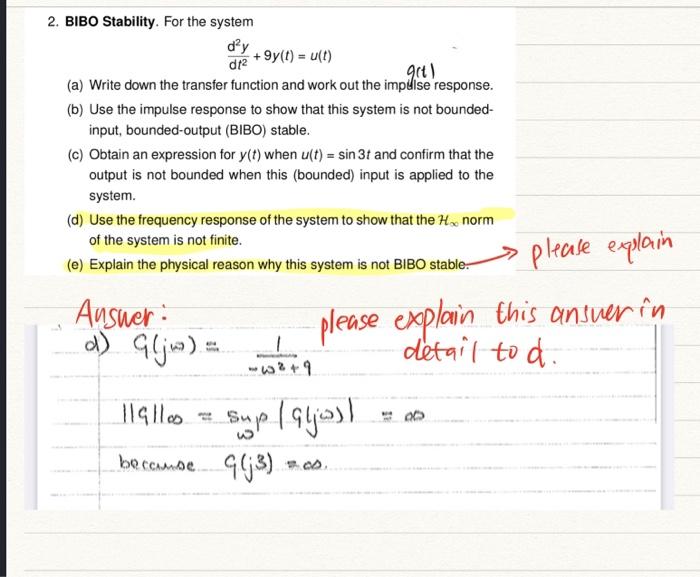 2. BIBO Stability. For the system
d²y/dt² + 9y(t) = u(t)
g(t)
(a) Write down the transfer function and work out the impulse response.
(b) Use the impulse response to show that this system is not bounded-
input, bounded-output (BIBO) stable.
(c) Obtain an expression for y(t) when u(t) = sin 3t and confirm that the
output is not bounded when this (bounded) input is applied to the
system.
(d) Use the frequency response of the system to show that the H∞ norm
of the system is not finite.
(e) Explain the physical reason why this system is not BIBO stable.
→ please explain
Answer:
please explain this answer in
detail to d.
d) G(jω) = 1/-ω²+9
||G||∞ = sup |G(jω)| = ∞
ω
because G(j3) = ∞.